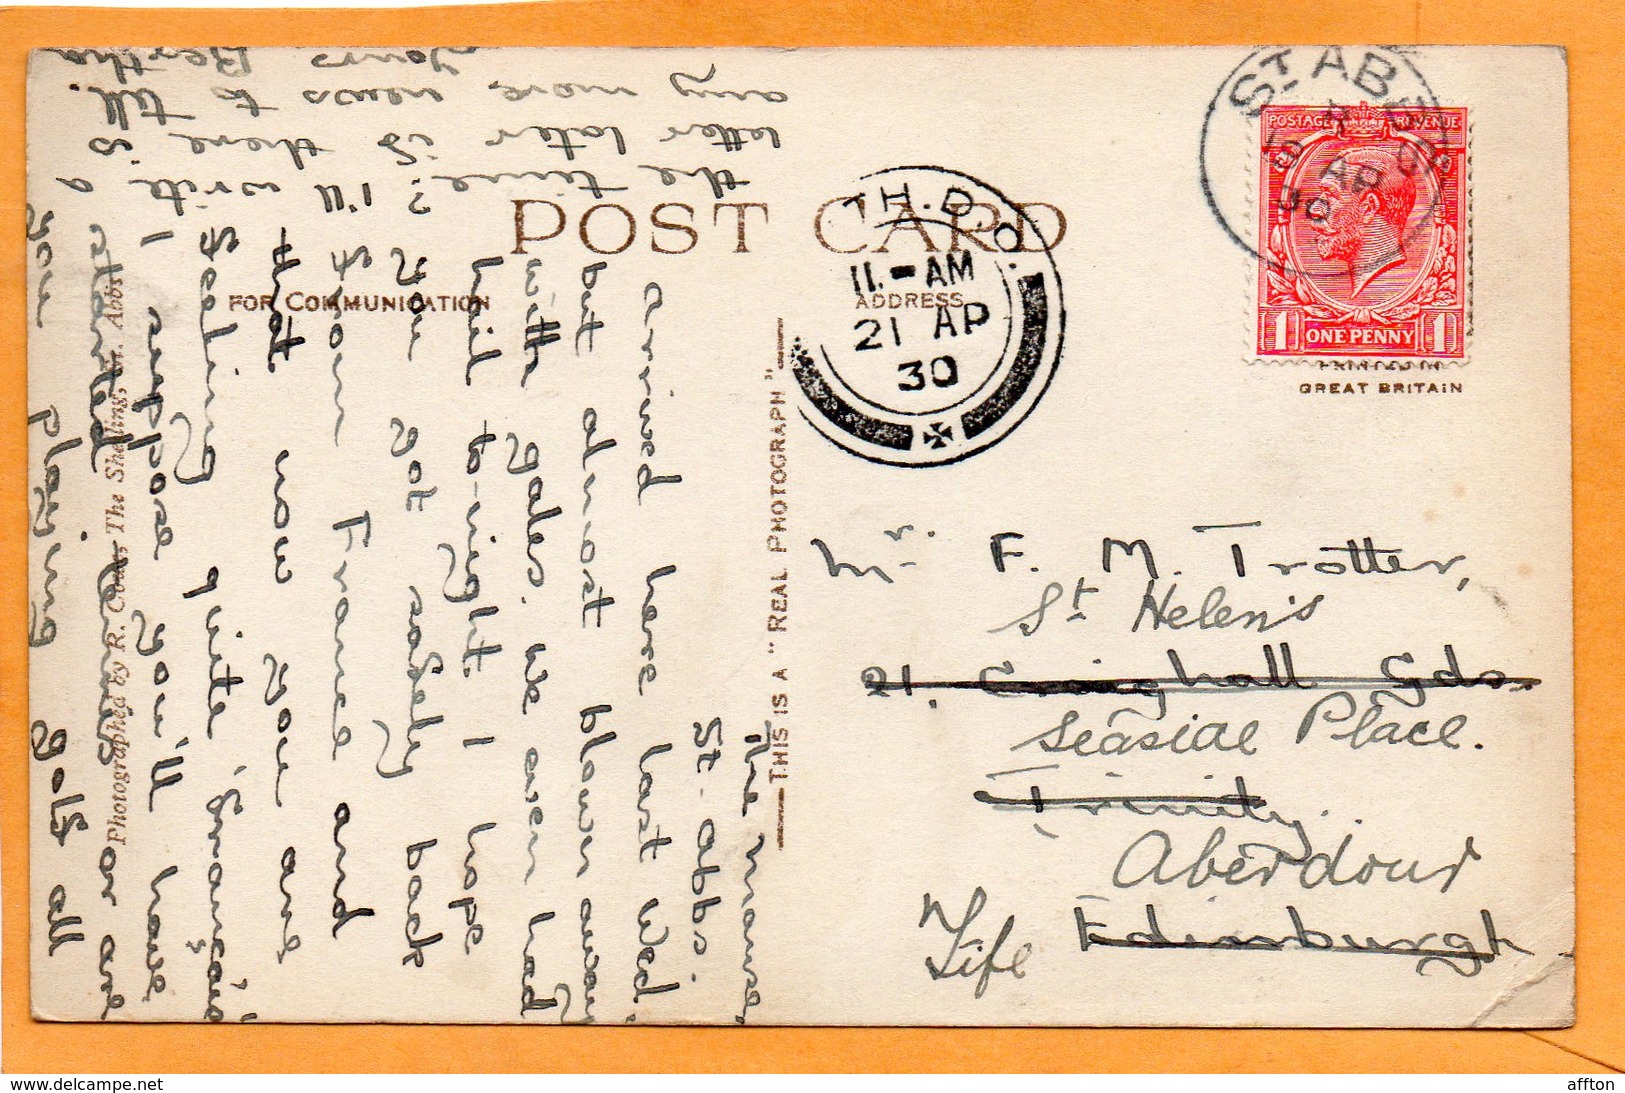 POST CARD
FOR COMMUNICATION
ADDRESS
THIS IS A "REAL PHOTOGRAPH"
Photographed by R. The Shielings, St. Abbs
POSTAGE REVENUE
ONE PENNY
1 1
PRINTED IN
GREAT BRITAIN
ST ABBS
AP
30
TH.D.O.
11.-AM
21 AP
30
The manse,
St. abbs.
arrived here last Wed.
but almost blown away
with gales. We even had
hail to-night. I hope
you got safely back
from France and
that now you are
feeling quite 'français'
I suppose you'll have
started tennis or are
you playing golf all
the time? I'll write a
letter later if there is
any more news to tell.
Yours Bertha
Mr. F. M. Trotter,
St Helen's
21, Craighall Gds.
Seaside Place.
Trinity.
Aberdour
Edinburgh
Fife
affton